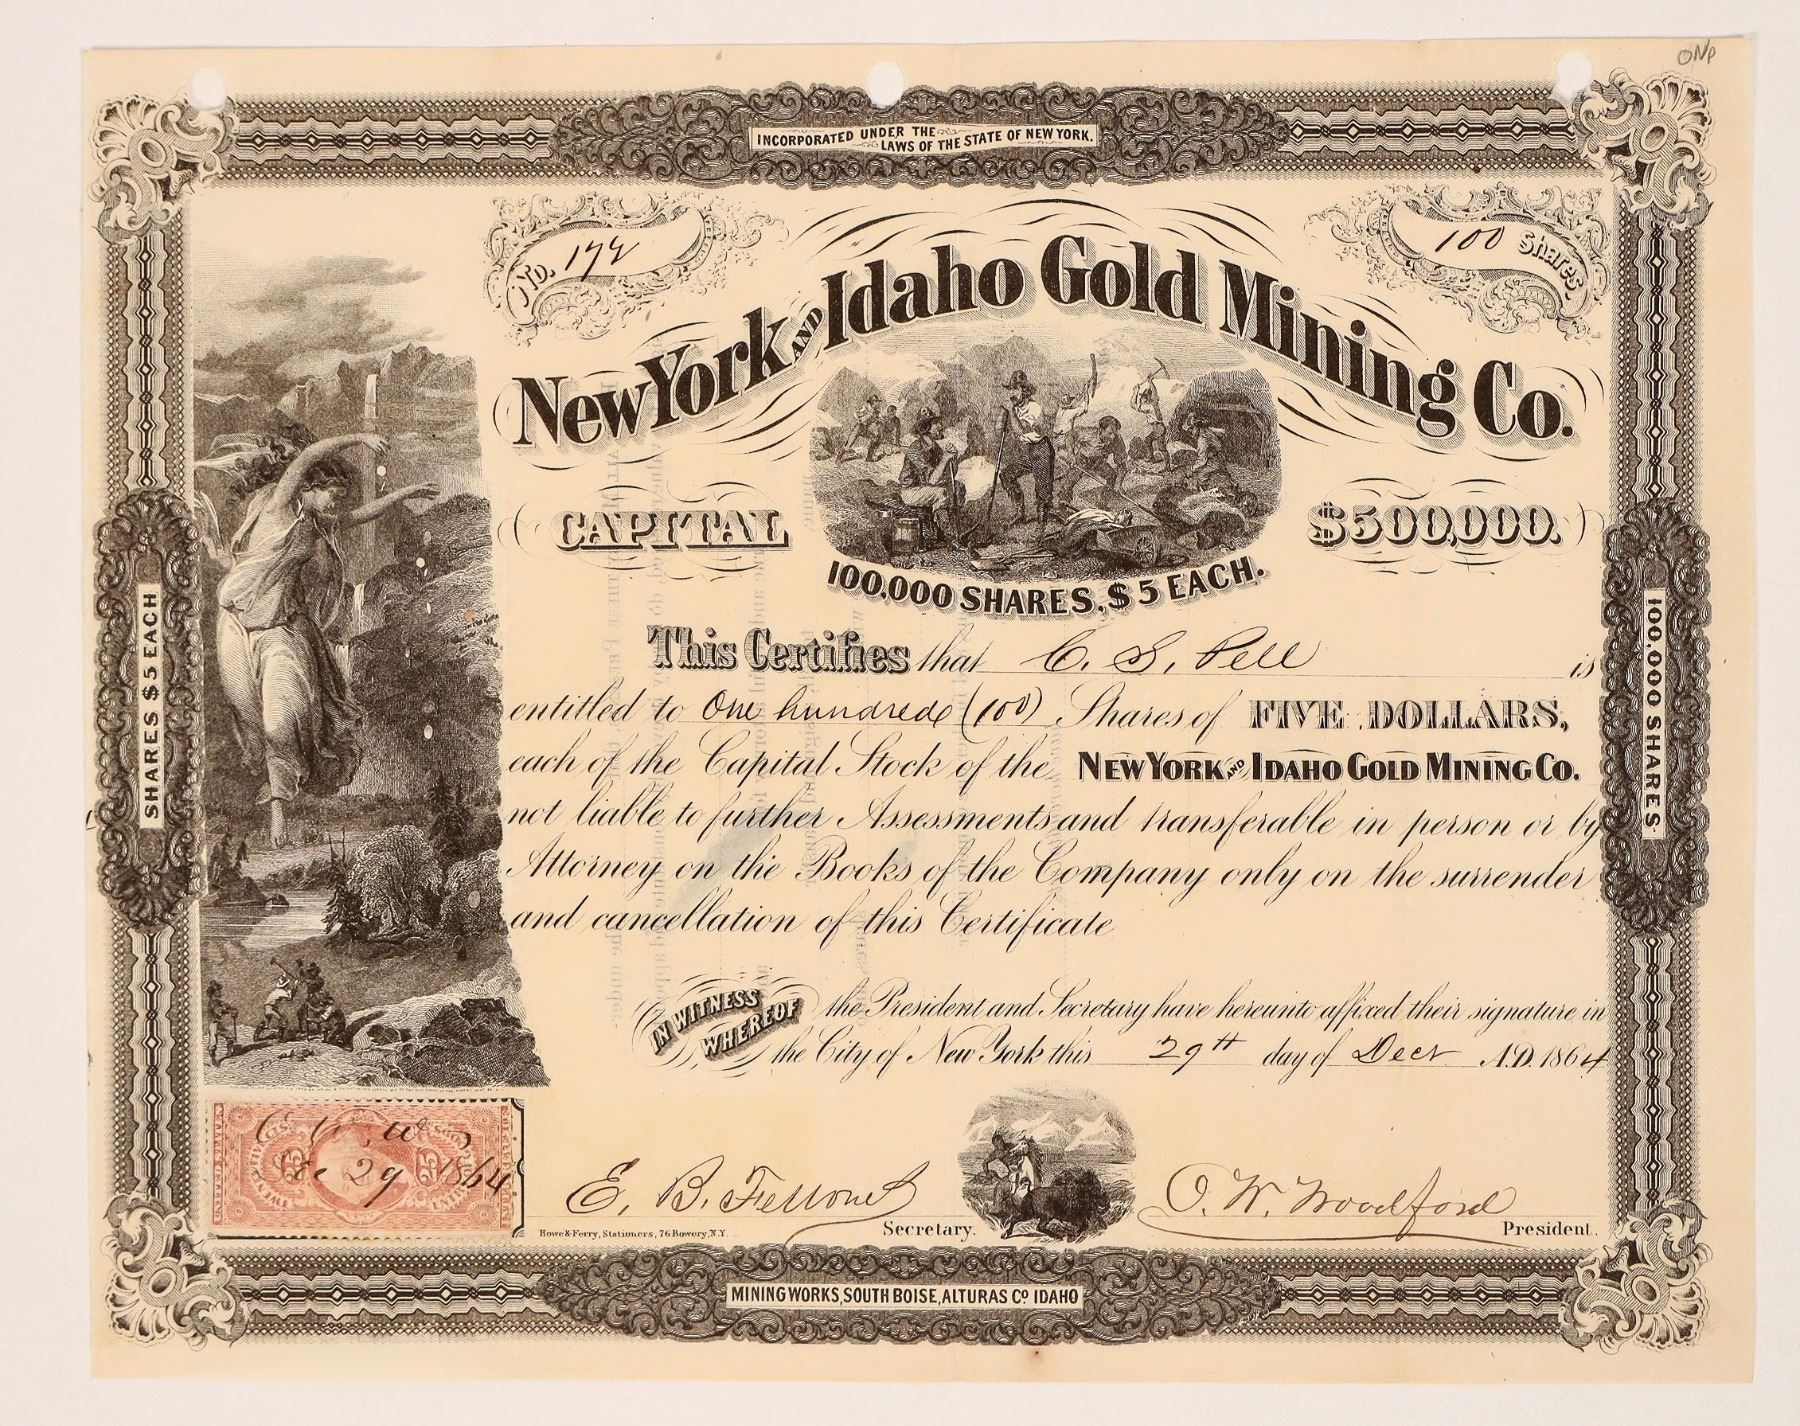 ONP
INCORPORATED UNDER THE LAWS OF THE STATE OF NEW YORK.
No. 172
100 Shares
New York AND Idaho Gold Mining Co.
CAPITAL $500,000.
100,000 SHARES, $5 EACH.
This Certifies that C. S. Pell is
entitled to One hundred (100) Shares of FIVE DOLLARS,
each of the Capital Stock of the NEW YORK AND IDAHO GOLD MINING CO.
not liable to further Assessments and transferable in person or by
Attorney on the Books of the Company only on the surrender
and cancellation of this Certificate
IN WITNESS WHEREOF the President and Secretary have hereunto affixed their signature in
the City of New York this 29th day of Decr A.D. 1864
SHARES $5 EACH
100,000 SHARES
25 25
Dec 29 1864
E. B. Fellows Secretary.
O. W. Woodford President.
Howe & Ferry, Stationers, 76 Bowery, N.Y.
MINING WORKS, SOUTH BOISE, ALTURAS CO IDAHO